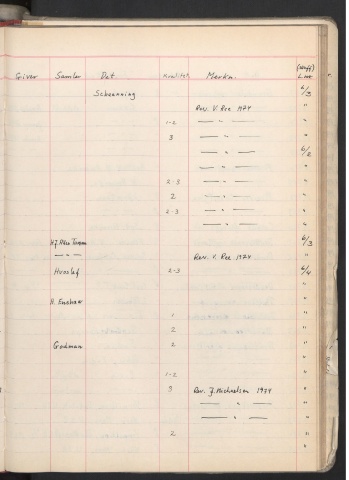 (Skuff)
Giver Samler Det. Kvalitet. Merkn. L.nr
Schoanning 6/3
Rev. V. Ree 1974 "
1-2 — " — "
3 — " — "
— " — 6/2
— " — "
2-3 — " — "
2 — " — "
2-3 — " — "
— " — "
6/3
— " — Rev. V. Ree 1974 "
Hvoslef 2-3 6/4
"
H. Enshaw "
1 "
2 "
Godman 2 "
"
1-2 "
3 Rev. J. Michaelsen 1974 "
— " — "
— " — "
2 "
"